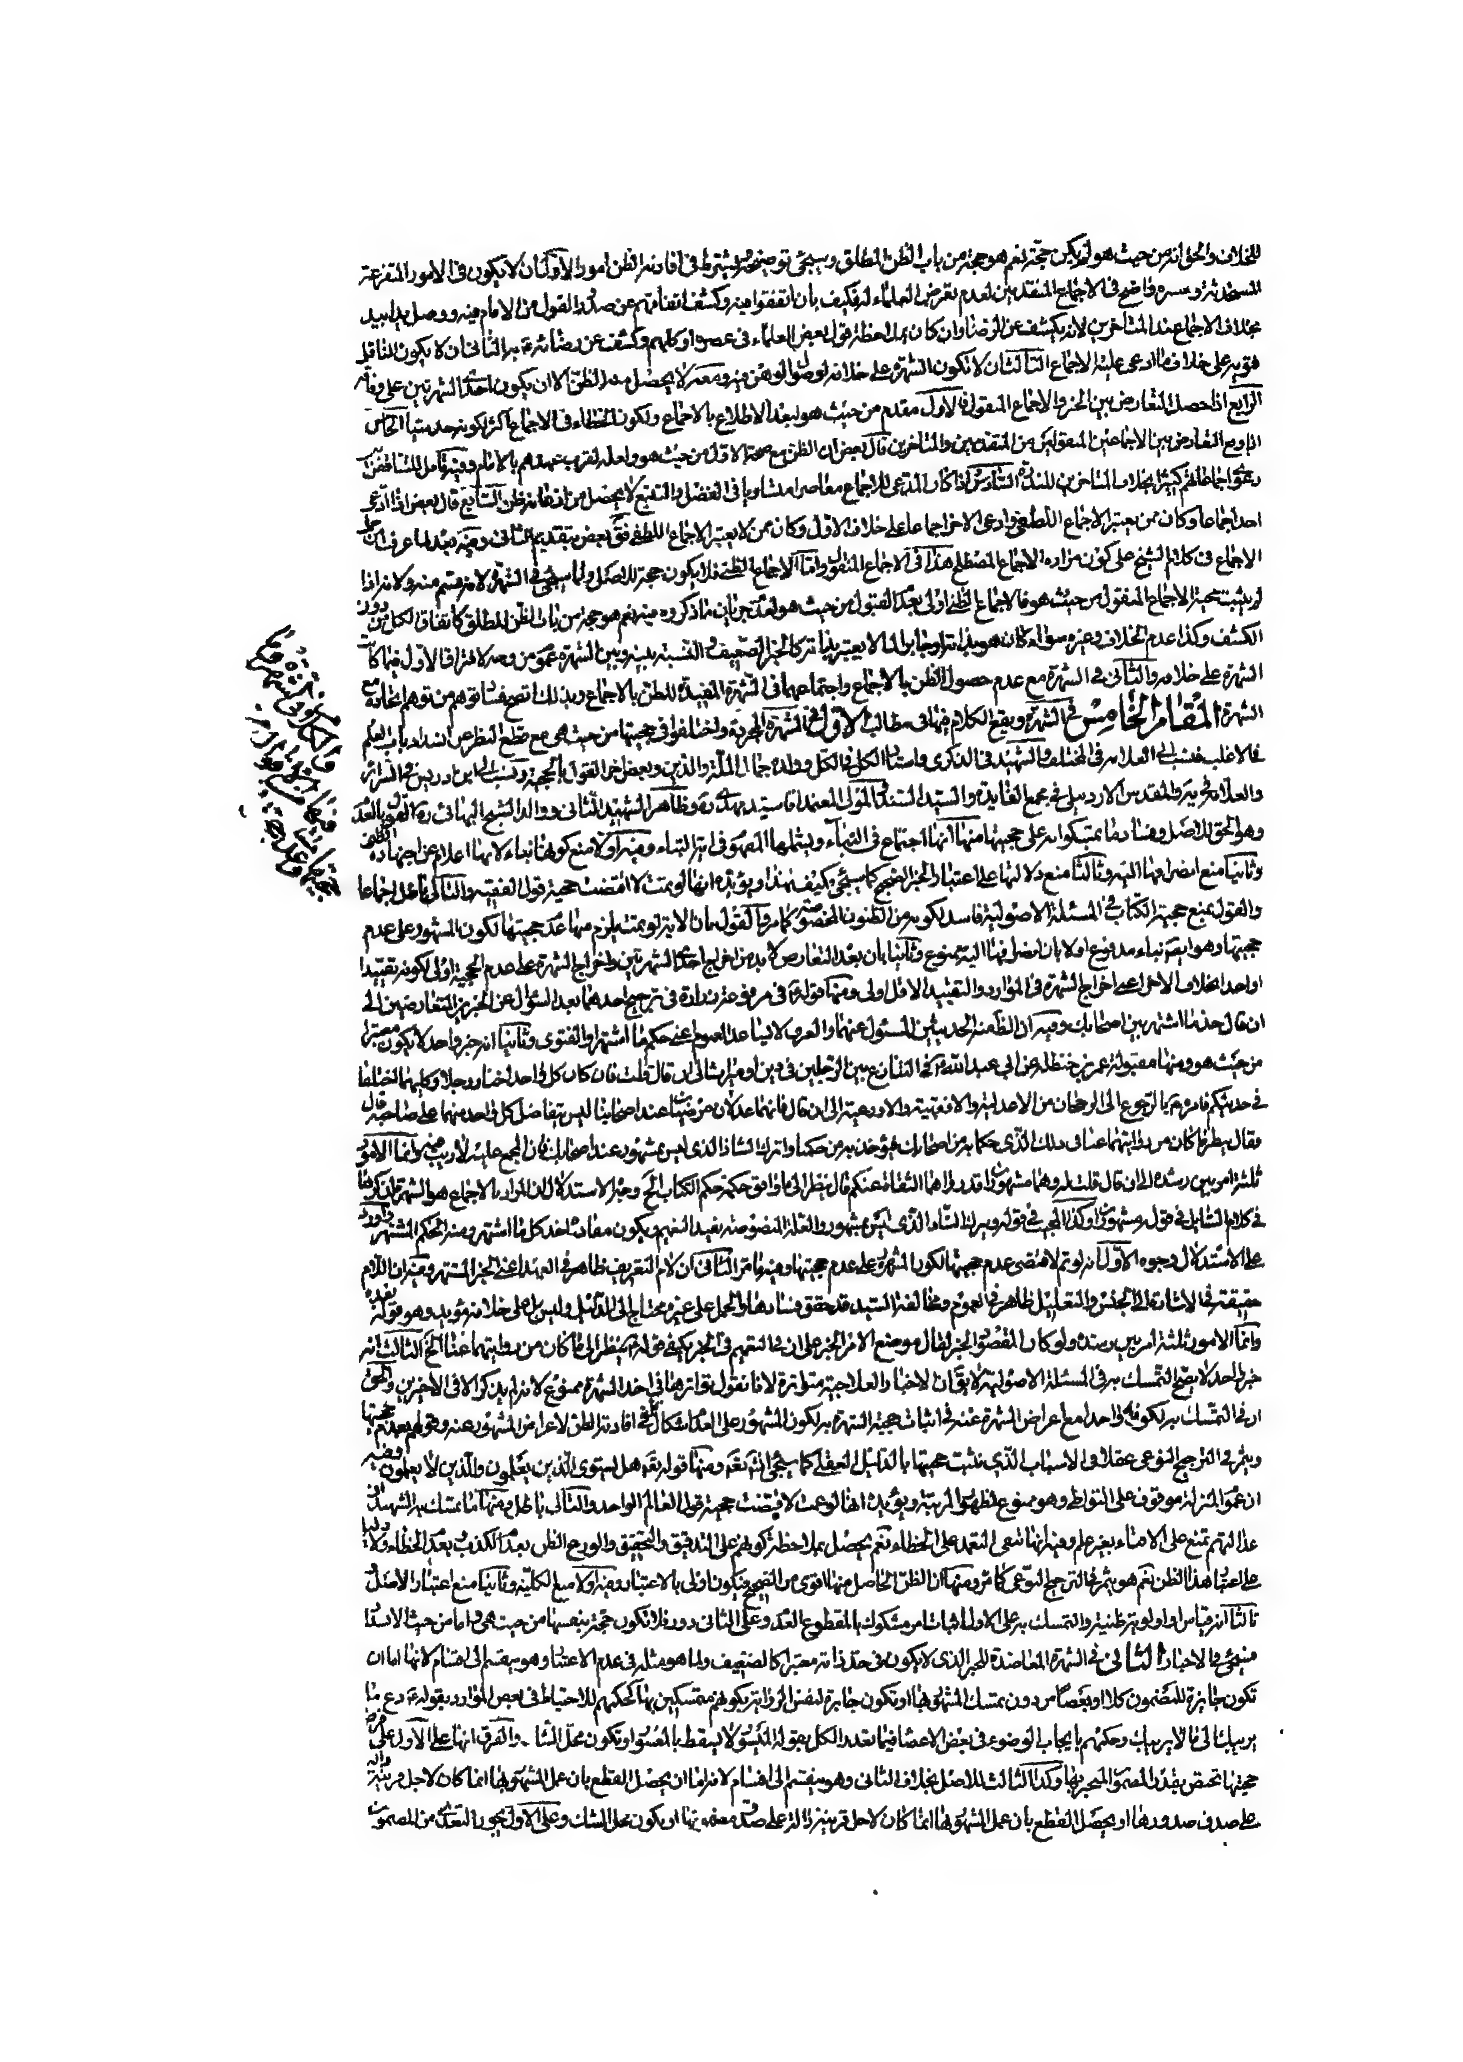 للخلاف والحق انه من حيث هو لم يكن حجة نعم هو حجة من باب الظن المطلق وسيجئ توضيحه يشترط فى افادته الظن امور الاول ان لا يكون فى الامور المتفرعة
المستحدثة وسره واضح فى الاجماع المتقدمين لعدم تعرض العلماء له فكيف بان اتفقوا فيه وكشف اتفاقهم عن صدور القول من الامام فيه ووصل يدا بيد
بخلاف الاجماع عند المتاخرين لانه يكشف عن الرضا وان كان بملاحظة قول بعض العلماء فى عصره او كلهم وكشف عن رضائه به الثانى ان لا يكون للناقل
فتويه على خلاف ما ادعى عليه الاجماع الثالث ان لا تكون الشهرة على خلافه لوصول الوهن فيه ومعه لا يحصل منه الظن الا ان يكون احد الشهرتين على وفاقه
الرابع اذا حصل التعارض بين الخبر والاجماع المنقول فالاول مقدم من حيث هو لبعد الاطلاع بالاجماع ولكون الخطاء فى الاجماع اكثر لكونه حدسيا الخامس
اذا وقع التعارض بين الاجماعين المنقولين من المتقدمين والمتاخرين قال بعض ان الظن مع صحة الاول من حيث هو ولعله لقرب عهدهم بالامام وفيه تامل للتناقض
دعوى اجماعاتهم كثيرا بخلاف المتاخرين للندرة السادس اذا كان المدعى للاجماع معاصرا متساويا فى الفضل والتتبع لا يحصل من اتفاقه ظن السابع قال بعض اذا ادعى
احد اجماعا وكان ممن يعتبر الاجماع اللطفى وادعى الاخر اجماعا على خلاف الاول وكان ممن لا يعتبر الاجماع اللطفى فق بعض بتقديم الثانى وفيه بعد لما عرفت ان
الاجماع فى كلام الشيخ على كون مراده الاجماع المصطلح هذا فى الاجماع المنقول واما الاجماع الظنى فلا يكون حجة للاصل ولما سيجئ فى الشهرة لانه قسم منه ولانه اذا
لم يثبت حجية الاجماع المنقول من حيث هو فالاجماع الظنى اولى بعد القبول من حيث هو لعدم جريان ما ذكروه فيه نعم هو حجة من باب الظن المطلق كاتفاق الكل من دون
الكشف وكذا عدم الخلاف وغيره سواء كان هو بذاته او جابرا لما لا يعتبر بذاته كالخبر الضعيف والنسبة بينه وبين الشهرة عموم من وجه لافتراق الاول فيما كانت
الشهرة على خلافه والثانى فى الشهرة مع عدم حصول الظن بالاجماع واجتماعهما فى الشهرة المفيدة للظن بالاجماع وبذلك اتضح فساد توهم من توهم اتحاده مع
الشهرة المقام الخامس فى الشهرة ويقع الكلام فيها فى مطالب الاول فى الشهرة المجردة واختلفوا فى حجيتها من حيث هى مع قطع النظر عن انسداد باب العلم
فالاغلب فنسب الى العلامة فى المختلف والشهيد فى الذكرى واستاد الكل فى الكل وولده جمال الملة والدين وبعض اخر القول بالحجية ونسب الى ابن ادريس فى السرائر
والعلامة فى والمقدس الاردبيلى فى مجمع الفايدة والسيد السند والمولى المعتمد اقا سيد مهدى ره وظاهر الشهيد الثانى ووالد الشيخ البهائى ره القول بالعدم
وهو الحق للاصل وفساد ما تمسكوا به على حجيتها منها انها اجتماع فى النباء ويشملها المفهوم فى اية النباء وفيه اولا منع كونها نباء لانها اعلام عن اجتهاده الظنى
وثانيا منع انصرافها اليه وثالثا منع دلالتها على اعتبار الخبر الصحيح كما سيجئ وكيف بهذا ويؤيده انها لو تمت لاقتضت حجية قول الفقيه والتالى باطل اجماعا
والقول بمنع حجية الكتاب فى المسئلة الاصولية فاسد لكونه من الظنون المخصوصة كما مر والقول بان الاية لو تمت يلزم منها عدم حجيتها لكون المشهور على عدم
حجيتها وهو ايض نباء مدفوع اولا بان انصرافها اليه ممنوع وثانيا بان بعد التعارض لا بد من اخراج احدى الشهرتين واخراج الشهرة على عدم الحجية اولى لكونه تقييدا
او احدا بخلاف الاخر اعنى اخراج الشهرة فى الموارد والتقييد الاقل اولى ومنها قوله ع فى مرفوعة زرارة فى ترجيح احدهما بعد السؤال عن الخبرين المتعارضين الخ
ان قال خذ بما اشتهر بين اصحابك وفيه ان الظ منه الحديثين المسئول عنهما والعرف لا يساعد العموم اعنى حكم ما اشتهر والفتوى وثانيا انه خبر واحد لا يكون معتبرا
من حيث هو ومنها مقبولة عمر بن حنظلة عن ابى عبد الله ع فى التنازع بين الرجلين فى دين او ميراث الى ان قال قلت فان كان كل واحد اختار رجلا وكليهما اختلفا
فى حديثكم فامره ع بالرجوع الى الرجحان من الاعدلية والافقهية والاورعية الى ان قال فانهما عدلان مرضيان عند اصحابنا ليس يتفاضل كل واحد منهما على صاحبه قال
فقال ينظر ما كان من روايتهما عنا فى ذلك الذى حكما به من اصحابك فيؤخذ به من حكمنا واترك الشاذ الذى ليس بمشهور عند اصحابك فان المجمع عليه لا ريب فيه وانما الامور
ثلثة امر بين رشده الى ان قال قلت له وهما مشهوران قد رواهما الثقات عنكم قال ينظر الى ما وافق حكمه حكم الكتاب الخ وجه الاستدلال ان المراد بالاجماع هو الشهرة لذكرها
فى كلام السائل فى قوله مشهوران وكذا المجيب فى قوله ويترك الشاذ الذى ليس بمشهور والعلة المنصوصة يفيد التعميم ويكون مفاده اخذ كل ما اشتهر ومنه الحكم المشتهر واورد
على الاستدلال وجوه الاول انه لو تم لاقتضى عدم حجيتها لكون المشهور على عدم حجيتها وفيه ما مر الثانى ان لام التعريف ظاهر فى العهد اعنى الخبر المشتهر وفيه ان اللام
حقيقة فى الاشارة الى الجنس والتعليل ظاهر فى العموم ومخالفة السيد قد حقق فسادها والحمل على غيره محتاج الى الدليل وليس بل على خلافه مؤيد وهو قوله بعده
وانما الامور ثلثة امر بين رشده ولو كان المقصود الخبر لقال موضع الامر الخبر على ان فى التعميم فى الخبر يكفى قوله ينظر الى ما كان من روايتهما عنا الخ الثالث انه
خبر واحد لا يصح التمسك به فى المسئلة الاصولية لا يق ان الاخبار العلاجية متواترة لانا نقول تواترها فى اخذ الشهرة ممنوع لانه لم يذكر الا فى الاخيرين والحق
ان فى التمسك به لكونه واحدا مع اعراض الشهرة عنه فى اثبات حجية الشهرة به لكون المشهور على العدم اشكال فى افادته الظن لاعراض المشهور عنه وقولهم بعدم حجيتها
ويثمر فى الترجيح النوعى عقلا فى الاسباب الذى يثبت حجيتها بالدليل العقلى كما سيجئ انش تعه ومنها قوله تعه هل يستوى الذين يعلمون والذين لا يعلمون وفيه
ان عموم المنزلة موقوف على التواطى وهو ممنوع لظهور المرتبة ويؤيده انها لو عمت لاقتضت حجية قول العالم الواحد والتالى باطل ومنها ما تمسك به الشهيد فى
عدالتهم تمنع على الافتاء بغير علم وفيه انها تنفى التعمد على الخطاء نعم يحصل بملاحظة كونهم على التدقيق والتحقيق والورع الظن بعد الكذب بعد الخطاء ولا دليل
على اعتبار هذا الظن نعم هو يثمر فى الترجيح النوعى كما مر ومنها ان الظن الحاصل منها اقوى من الصحيح فيكون اولى بالاعتبار وفيه اولا منع الكلية وثانيا منع اعتبار الاصل
ثالثا انه قياس او اولوية ظنية والتمسك به على الاول اثبات امر مشكوك بالمقطوع العدم وعلى الثانى دور فلا تكون حجة بنفسها من حيث هى واما من حيث الانسداد
فيجئ فى الاخبار الثانى فى الشهرة المعاضدة للخبر الذى لا يكون فى حد ذاته معتبرا كالضعيف ولما هو مثله فى عدم الاعتبار وهو ينقسم الى اقسام لانها اما ان
تكون جابرة للمضمون كلا او بعضا من دون تمسك المشهور بها او تكون جابرة لنفس الرواية بكونهم متمسكين بها كحكمهم للاحتياط فى بعض الموارد بقوله ع دع ما
يريبك الى ما لا يريبك وحكمهم بايجاب الوضوء فى بعض الاعضا فيما تعدد الكل بقوله الميسور لا يسقط بالمعسور او تكون محل الشك والفرق انها على الاول على فرض
حجيتها تختص بقدر المضمون المنجبر بها وكذا الثالث للاصل بخلاف الثانى وهو ينقسم الى اقسام لانه اما ان يحصل القطع بان عمل المشهور بها انما كان لاجل قرينة دالة
على صدق صدورها او يحصل القطع بان عمل المشهور بها انما كان لاجل قرينة دالة على صدق مضمونها او يكون محل الشك وعلى الاول يجوز التعدى من المضمون